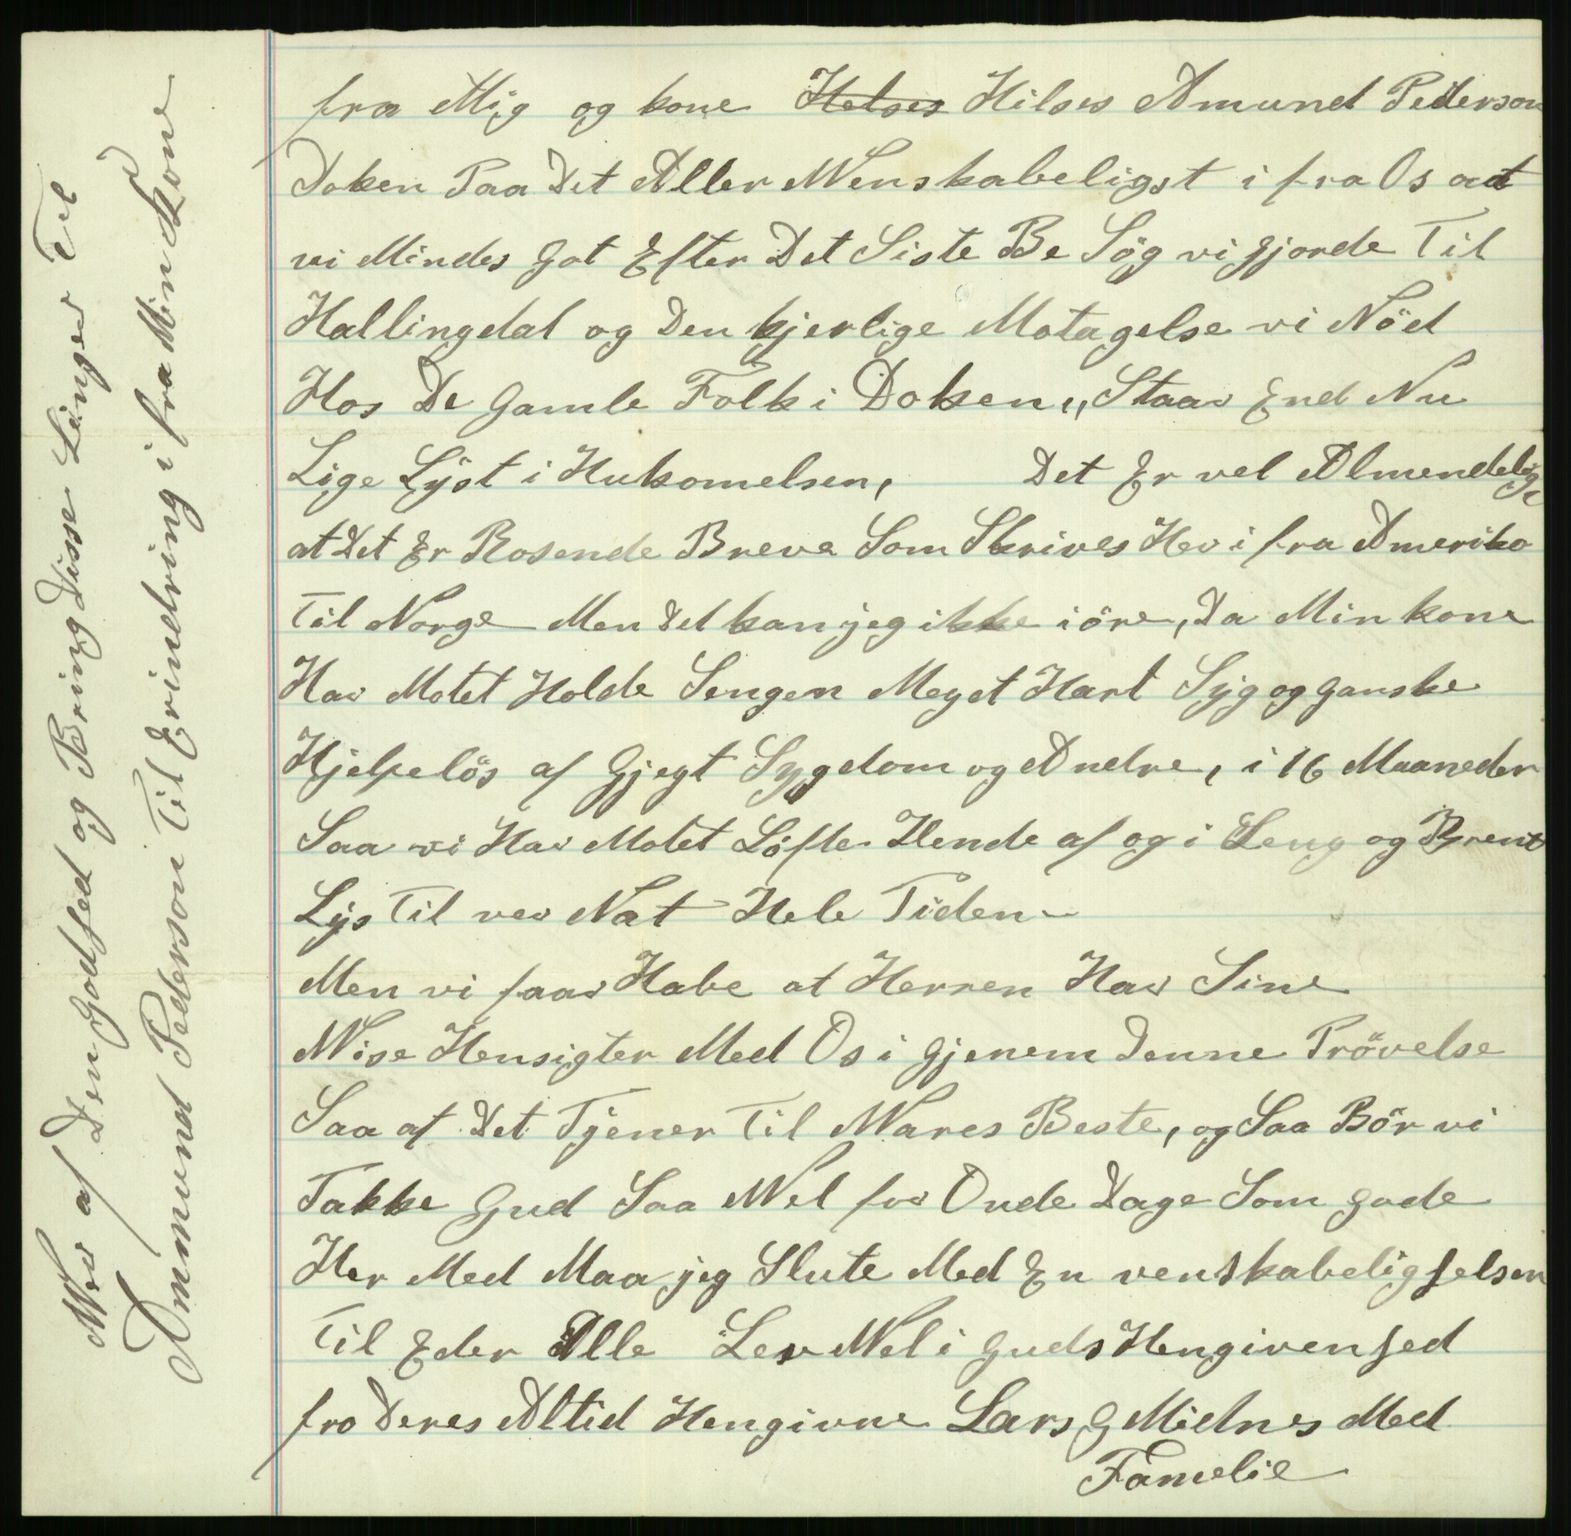 fra Mig og kone Helses Hilses Amund Pederson
Doken Paa Det Aller Wenskabeligst i fra Os at
vi Mindes Got Efter Det Siste Be Søg vi gjorde Til
Hallingdal og Den kjerlige Motagelse vi Nöd
Hos De Gamle Folk i Doken,, Staar End Nu
Lige Lyst i Hukomelsen, Det Er vel Almendelig,
at Det Er Rosende Breve Som Skrives Her i fra Ameriko
Til Norge Men Det kan jeg ikke iöre, Da Min kone
Har Motet Holde Sengen Meget Hart Syg og ganske
Hjelpelös af Gjegt Sygdom og Andre, i 16 Maaneder
Saa vi Har Motet Löfte Hende af og i Seng og Brent
Lys Til ver Nat Hele Tiden
Men vi faar Habe at Herren Har Sine
Wise Hensigter Med Os i Gjenem Denne Prövelse
Saa at Det Tjener Til Wares Beste, og Saa Bör vi
Takke Gud Saa Wel for Onde Dage Som gode
Her Med Maa jeg Slute Med En venskabelig helsen
Til Eder Alle Lev Wel i Guds Hengivenhed
fro Deres Altid Hengivne Lars G Midnes Med
Famelie
Wer af Den Godhed og Bring Disse Linger Til
Ammund Pederson Til Erindring i fra Min Kone